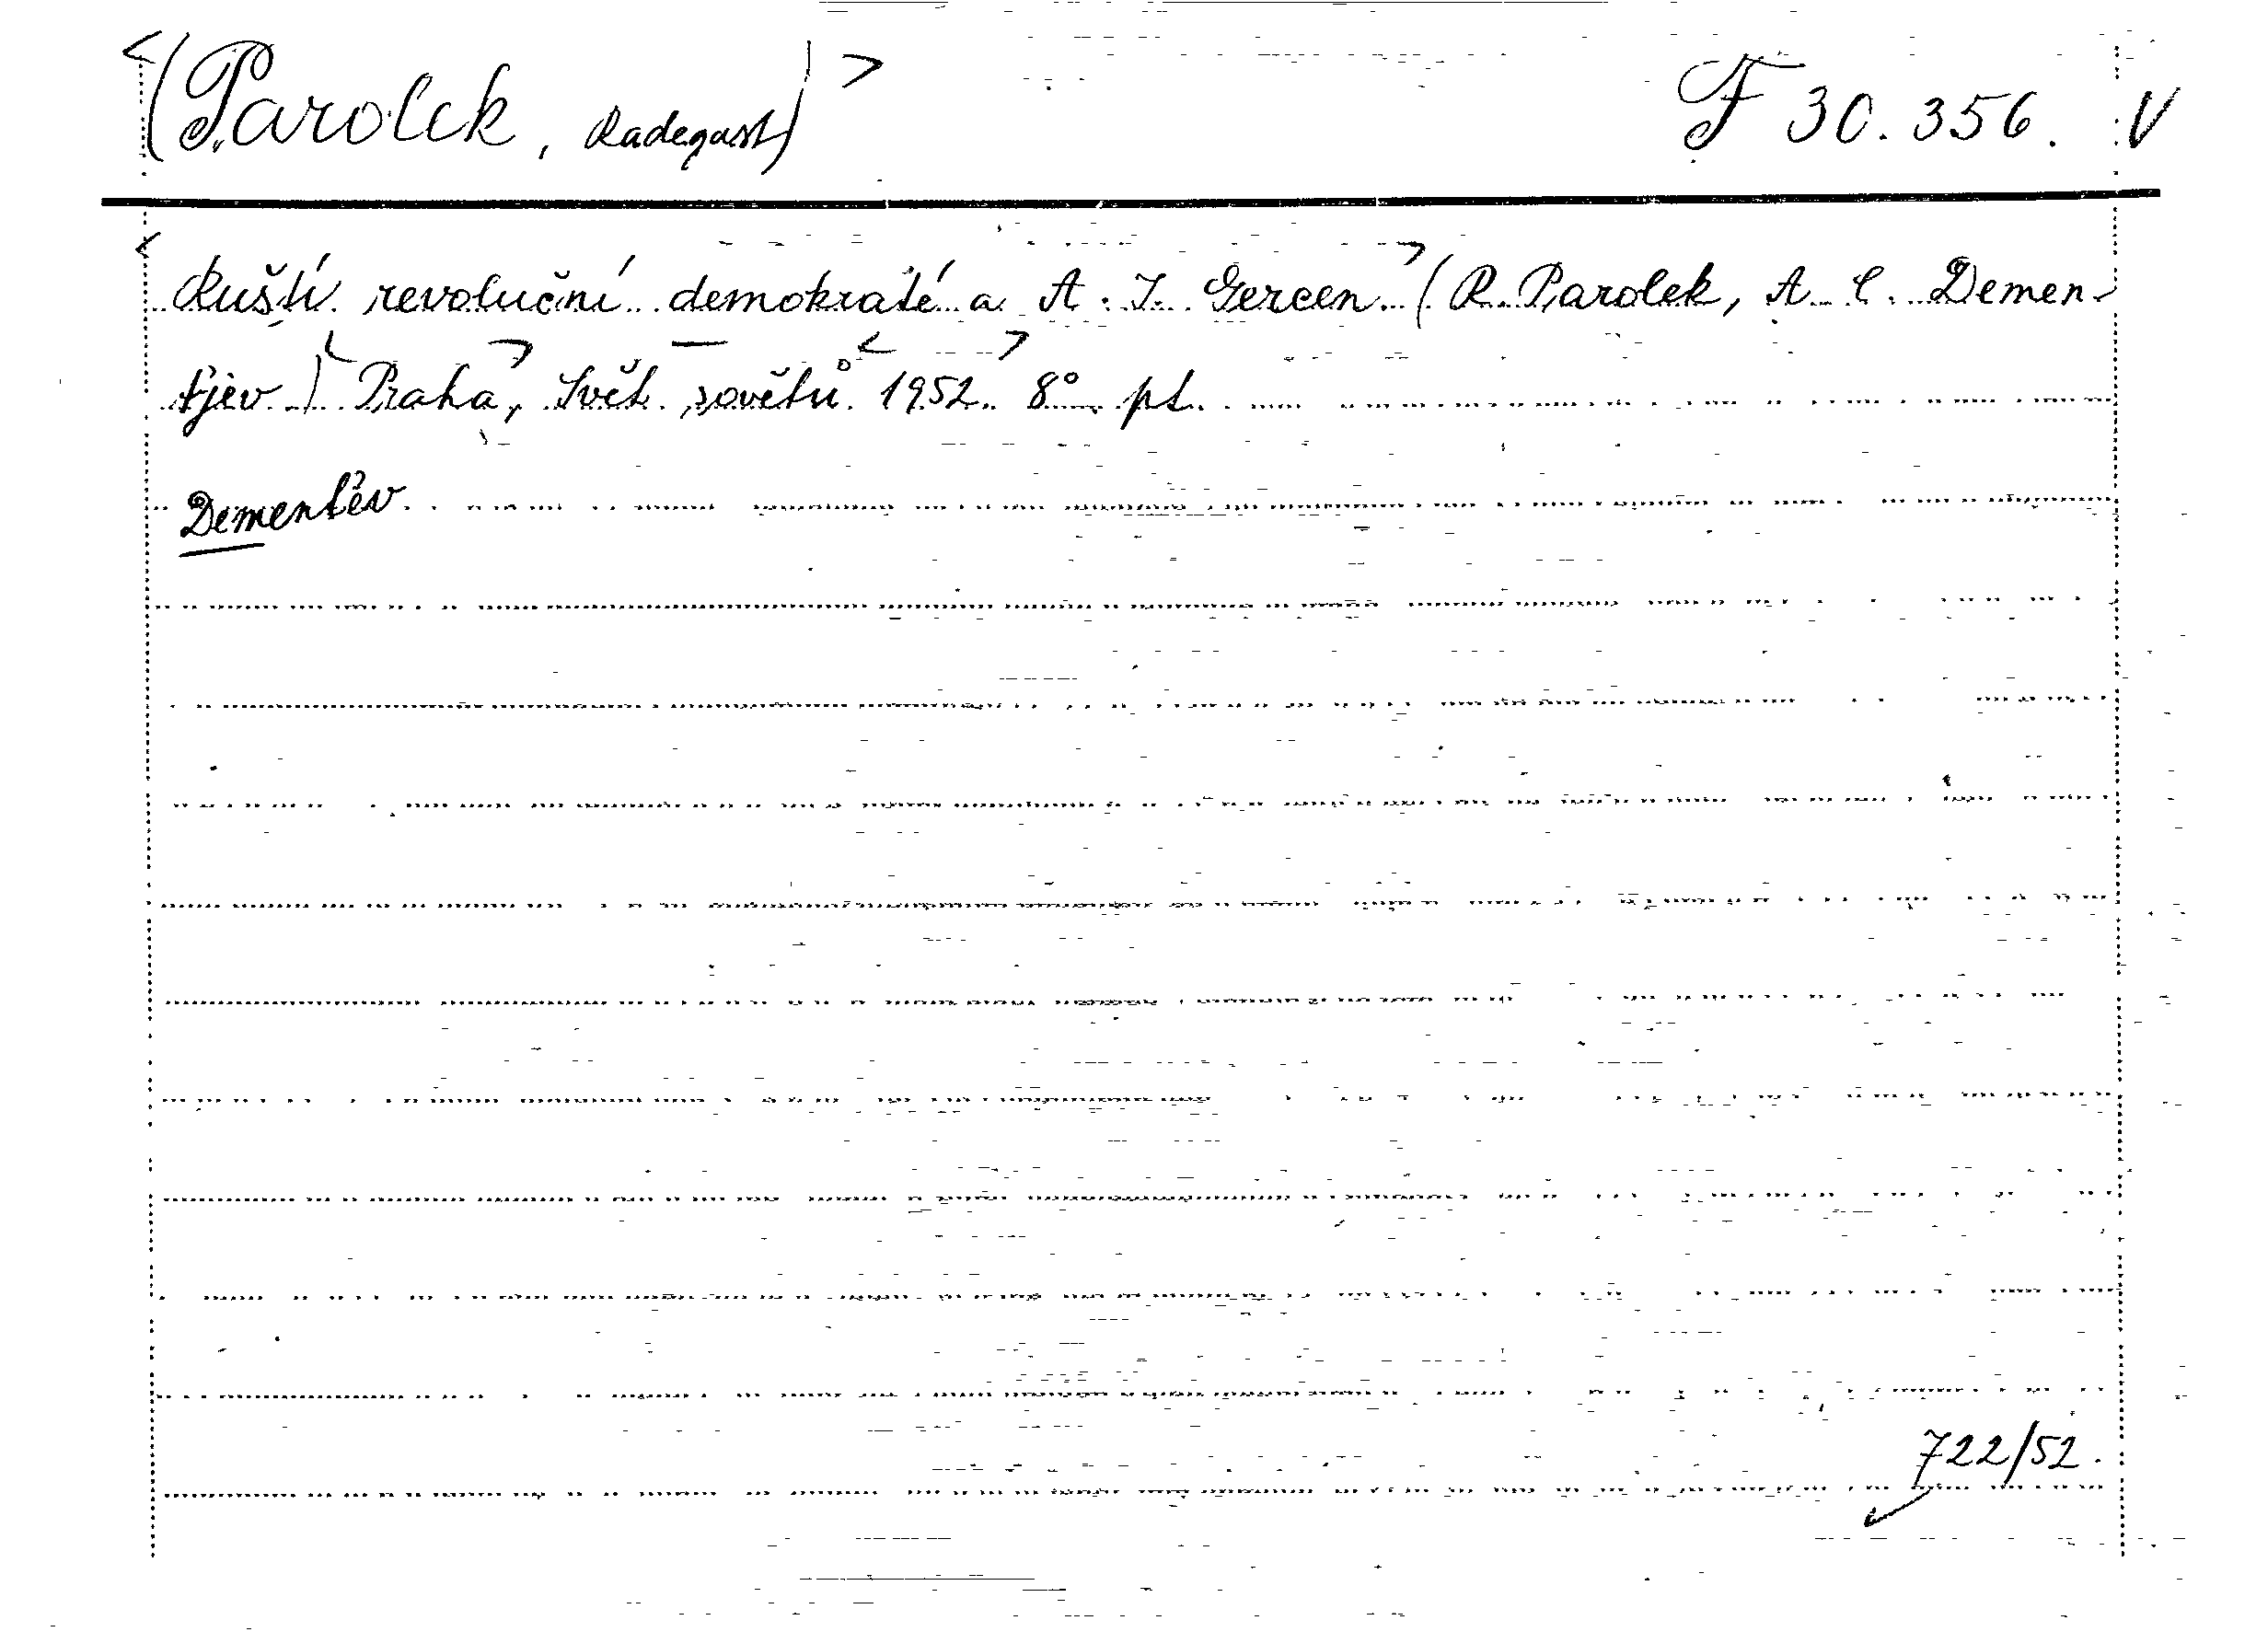 <(Parolek, Radegast)> F 30.356. V
<Ruští revoluční demokraté a A. I. Gercen> (R. Parolek, A. C. Demen-
tjev.) <Praha>, Svět sovětů <1952.> 8° pt.
Dementěv
722/52.